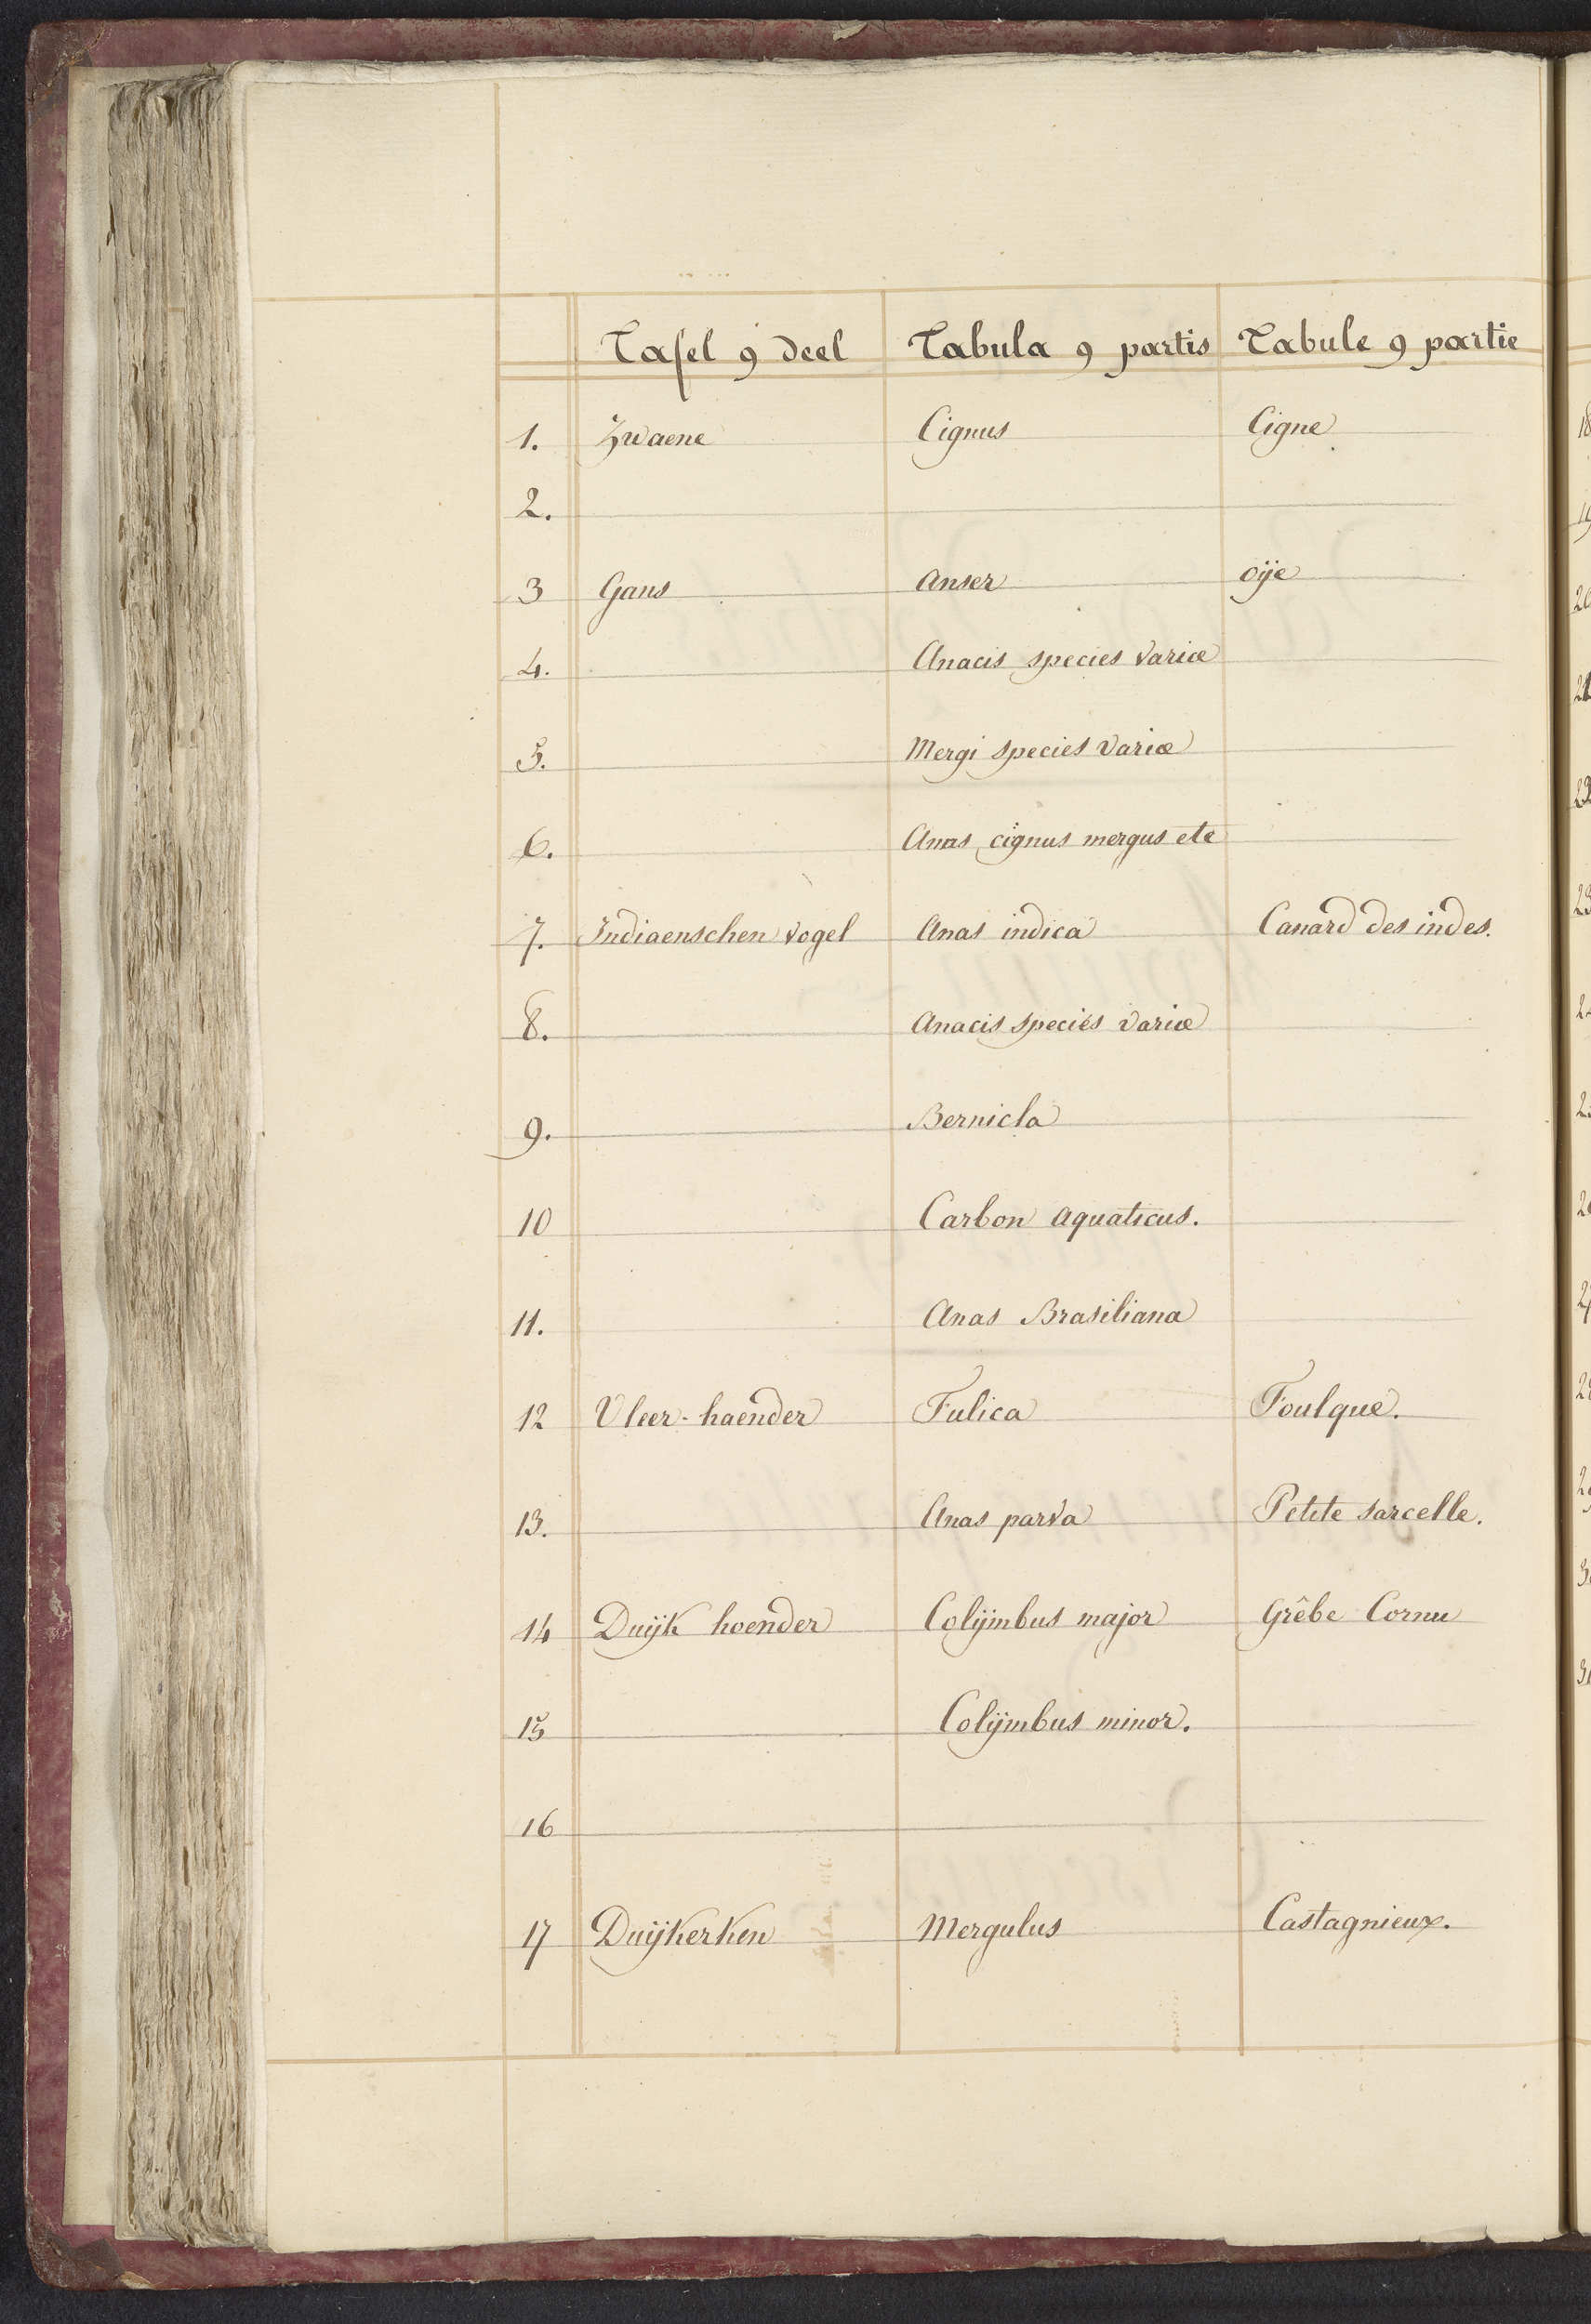 Tafel 9 deel Tabula 9 partis Tabule 9 partie
1. Zwaene Cignus Cigne
2.
3 Gans Anser oije
4. Anacis species variæ
5. Mergi species variæ
6. Anas cignus mergus etc
7. Indiaenschen vogel Anas indica Canard des indes.
8. Anacis species variæ
9. Bernicla
10 Carbon aquaticus.
11. Anas Brasiliana
12 Vleer-haender Fulica Foulque.
13. Anas parva Petite sarcelle.
14 Duijk hoender Colijmbus major Grêbe Cornu
15 Colijmbus minor.
16
17 Duijkerken Mergulus Castagnieux.